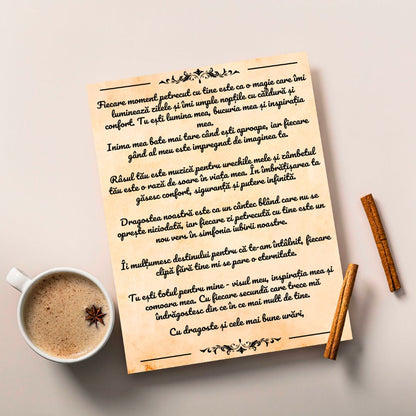 Fiecare moment petrecut cu tine este ca o magie care îmi
luminează zilele și îmi umple nopțile cu căldură și
confort. Tu ești lumina mea, bucuria mea și inspirația
mea.
Inima mea bate mai tare când ești aproape, iar fiecare
gând al meu este impregnat de imaginea ta.
Râsul tău este muzică pentru urechile mele și zâmbetul
tău este o rază de soare în viața mea. În îmbrățișarea ta
găsesc confort, siguranță și putere infinită.
Dragostea noastră este ca un cântec blând care nu se
oprește niciodată, iar fiecare zi petrecută cu tine este un
nou vers în simfonia iubirii noastre.
Îi mulțumesc destinului pentru că te-am întâlnit, fiecare
clipă fără tine mi se pare o eternitate.
Tu ești totul pentru mine - visul meu, inspirația mea și
comoara mea. Cu fiecare secundă care trece mă
îndrăgostesc din ce în ce mai mult de tine.
Cu dragoste și cele mai bune urări,